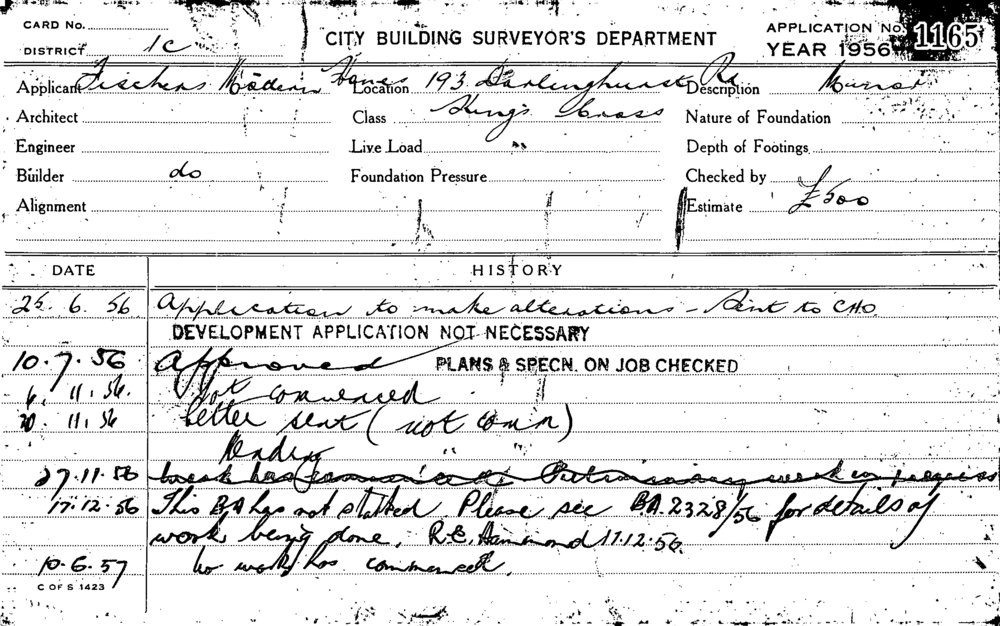 CARD No.
DISTRICT 1c
CITY BUILDING SURVEYOR'S DEPARTMENT
APPLICATION No. 1165
YEAR 1956
Applicant Fischers Modern Homes Location 193 Darlinghurst Rd Description Minor
Architect Class Kings Cross Nature of Foundation
Engineer Live Load " Depth of Footings
Builder do Foundation Pressure Checked by
Alignment Estimate £500
DATE HISTORY
25. 6. 56 Application to make alterations - Sent to CHO
DEVELOPMENT APPLICATION NOT NECESSARY
10.7.56 Approved PLANS & SPECN. ON JOB CHECKED
6. 11. 56. Not commenced
20. 11. 56 Letter sent (not comm)
" "
27.11.56 work has work in progress
17.12.56 This BA has not started. Please see BA.2328/56 for details of
work being done. R.E. Hammond 17.12.56.
10.6.57 No work has commenced.
C OF S 1423